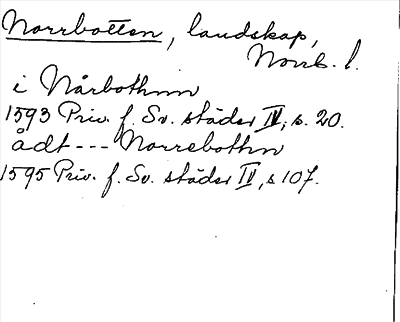 Norrbotten, landskap,
Norrb. l.
i Nårbothnn
1593 Priv. f. Sv. städer IV, s. 20.
ådt --- Norrebothn
1595 Priv. f. Sv. städer IV, s 107.